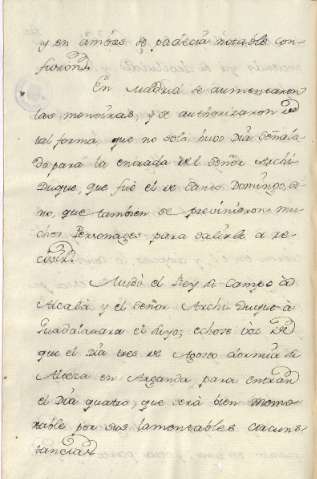 y en ambas se padecia notable con-
fusion.
En Madrid se aumentaron
las mentiras, y se authorizaron de
tal forma que no solo huvo Dia señala-
do para la entrada del Señor Archi
Duque, que fué el de Santo Domingo, si-
no, que tambien se previnieron mu-
chos Personages para salirle a re-
civir.
Mudó el Rey su Campo de
Alcalá y el Señor Archi Duque à
Guadalaxara el suyo; echose voz de
que el Dia tres de Agosto dormia su
Alteza en Arganda, para entrar
el Dia quatro, que será bien memo-
rable por sus lamentables circuns-
tancias.